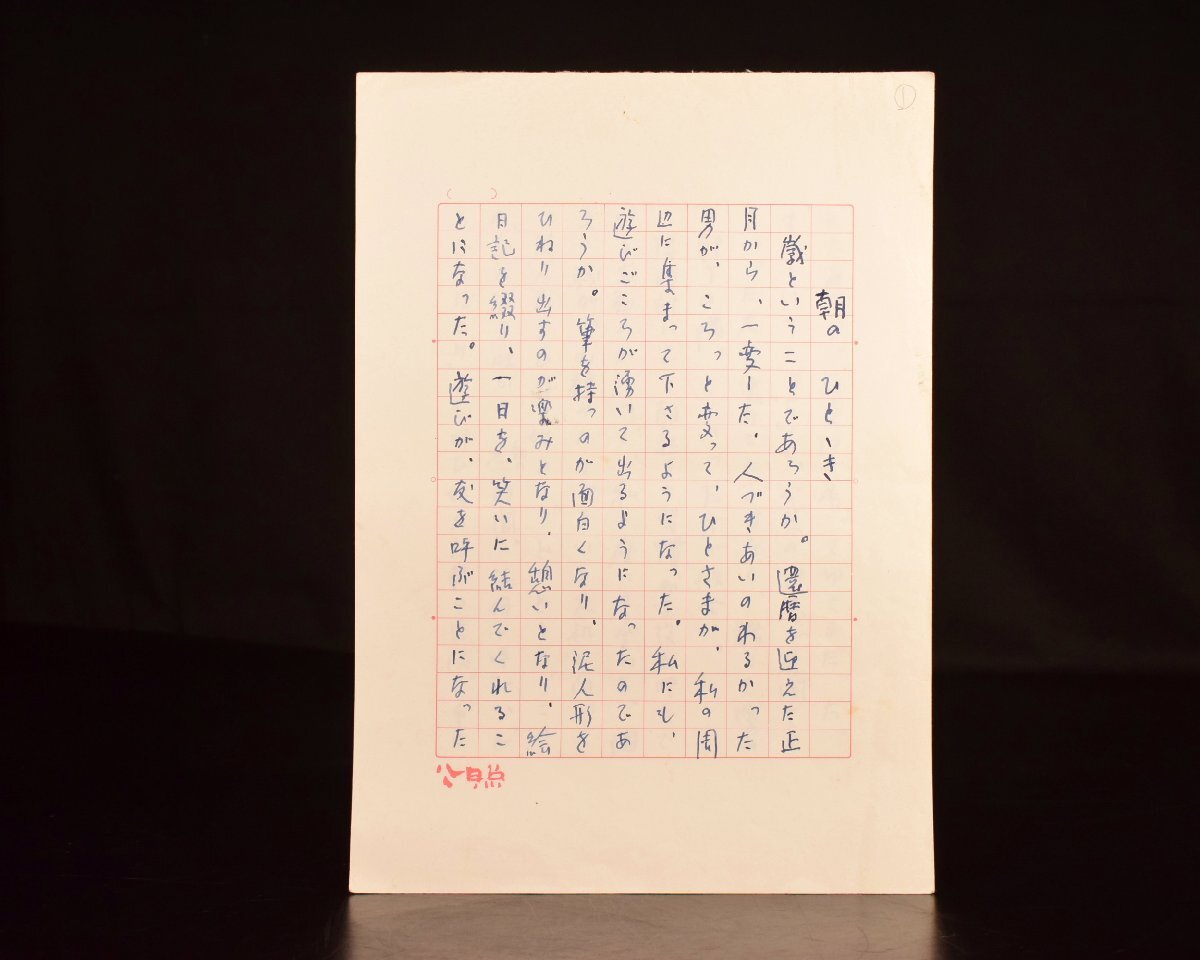 ①
朝の ひとゝき
歳ということであろうか。還暦を迎えた正
月から、一変した。人づきあいのわるかった
男が、ころっと変って、ひとさまが、私の周
辺に集まって下さるようになった。私にも、
遊びごころが湧いて出るようになったのであ
ろうか。筆を持つのが面白くなり、泥人形を
ひねり出すのが楽みとなり、憩いとなり、絵
日記を綴り、一日を、笑いに結んでくれるこ
とになった。遊びが、友を呼ぶことになった